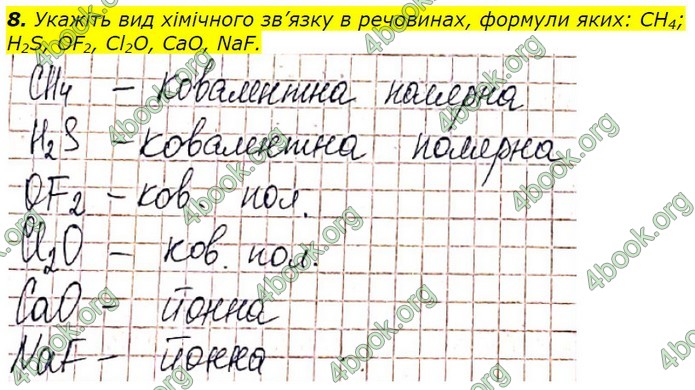 8. Укажіть вид хімічного зв’язку в речовинах, формули яких: CH₄;
H₂S, OF₂, Cl₂O, CaO, NaF.
CH₄ – ковалентна полярна
H₂S – ковалентна полярна
OF₂ – ков. пол.
Cl₂O – ков. пол.
CaO – йонна
NaF – йонна
4book.org
4book.org
4book.org
4book.org
4book.org
4book.org
4book.org
4book.org
4book.org